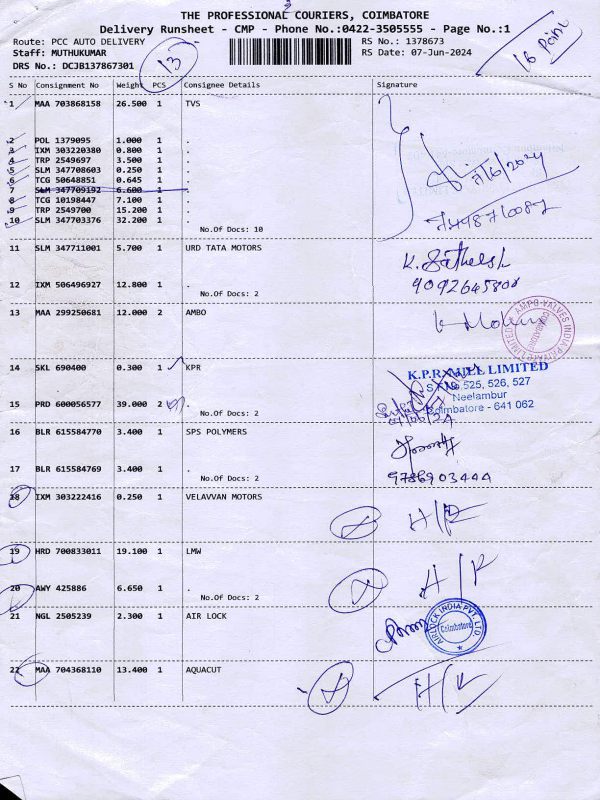 THE PROFESSIONAL COURIERS, COIMBATORE
Delivery Runsheet - CMP - Phone No.:0422-3505555 - Page No.:1
Route: PCC AUTO DELIVERY
RS No.: 1378673
Staff: MUTHUKUMAR
RS Date: 07-Jun-2024
DRS No.: DCJB137867301
13
S No Consignment No Weight PCS Consignee Details Signature
1 MAA 703868158 26.500 1 TVS
2 POL 1379095 1.000 1 .
3 IXM 303220380 0.800 1 .
4 TRP 2549697 3.500 1 .
5 SLM 347708603 0.250 1 .
6 TCG 50648851 0.645 1 .
7 SLM 347709192 6.600 1 .
8 TCG 10198447 7.100 1 .
9 TRP 2549700 15.200 1 .
10 SLM 347703376 32.200 1 .
No.Of Docs: 10
7/6/2024
11 SLM 347711001 5.700 1 URD TATA MOTORS
12 IXM 506496927 12.800 1 .
No.Of Docs: 2
9092645804
13 MAA 299250681 12.000 2 AMBO
AMPO VALVES INDIA PRIVATE LIMITED
14 SKL 690400 0.300 1 KPR
15 PRD 600056577 39.000 2 .
No.Of Docs: 2
K.P.R. MILL LIMITED
S.F. No.525, 526, 527
Neelambur
Coimbatore - 641 062
16 BLR 615584770 3.400 1 SPS POLYMERS
17 BLR 615584769 3.400 1 .
No.Of Docs: 2
9786903444
18 IXM 303222416 0.250 1 VELAVVAN MOTORS
H/R
19 HRD 700833011 19.100 1 LMW
20 AWY 425886 6.650 1 .
No.Of Docs: 2
H/R
21 NGL 2505239 2.300 1 AIR LOCK
AIRLOCK INDIA PVT. LTD.
Coimbatore
22 MAA 704368110 13.400 1 AQUACUT
H/R